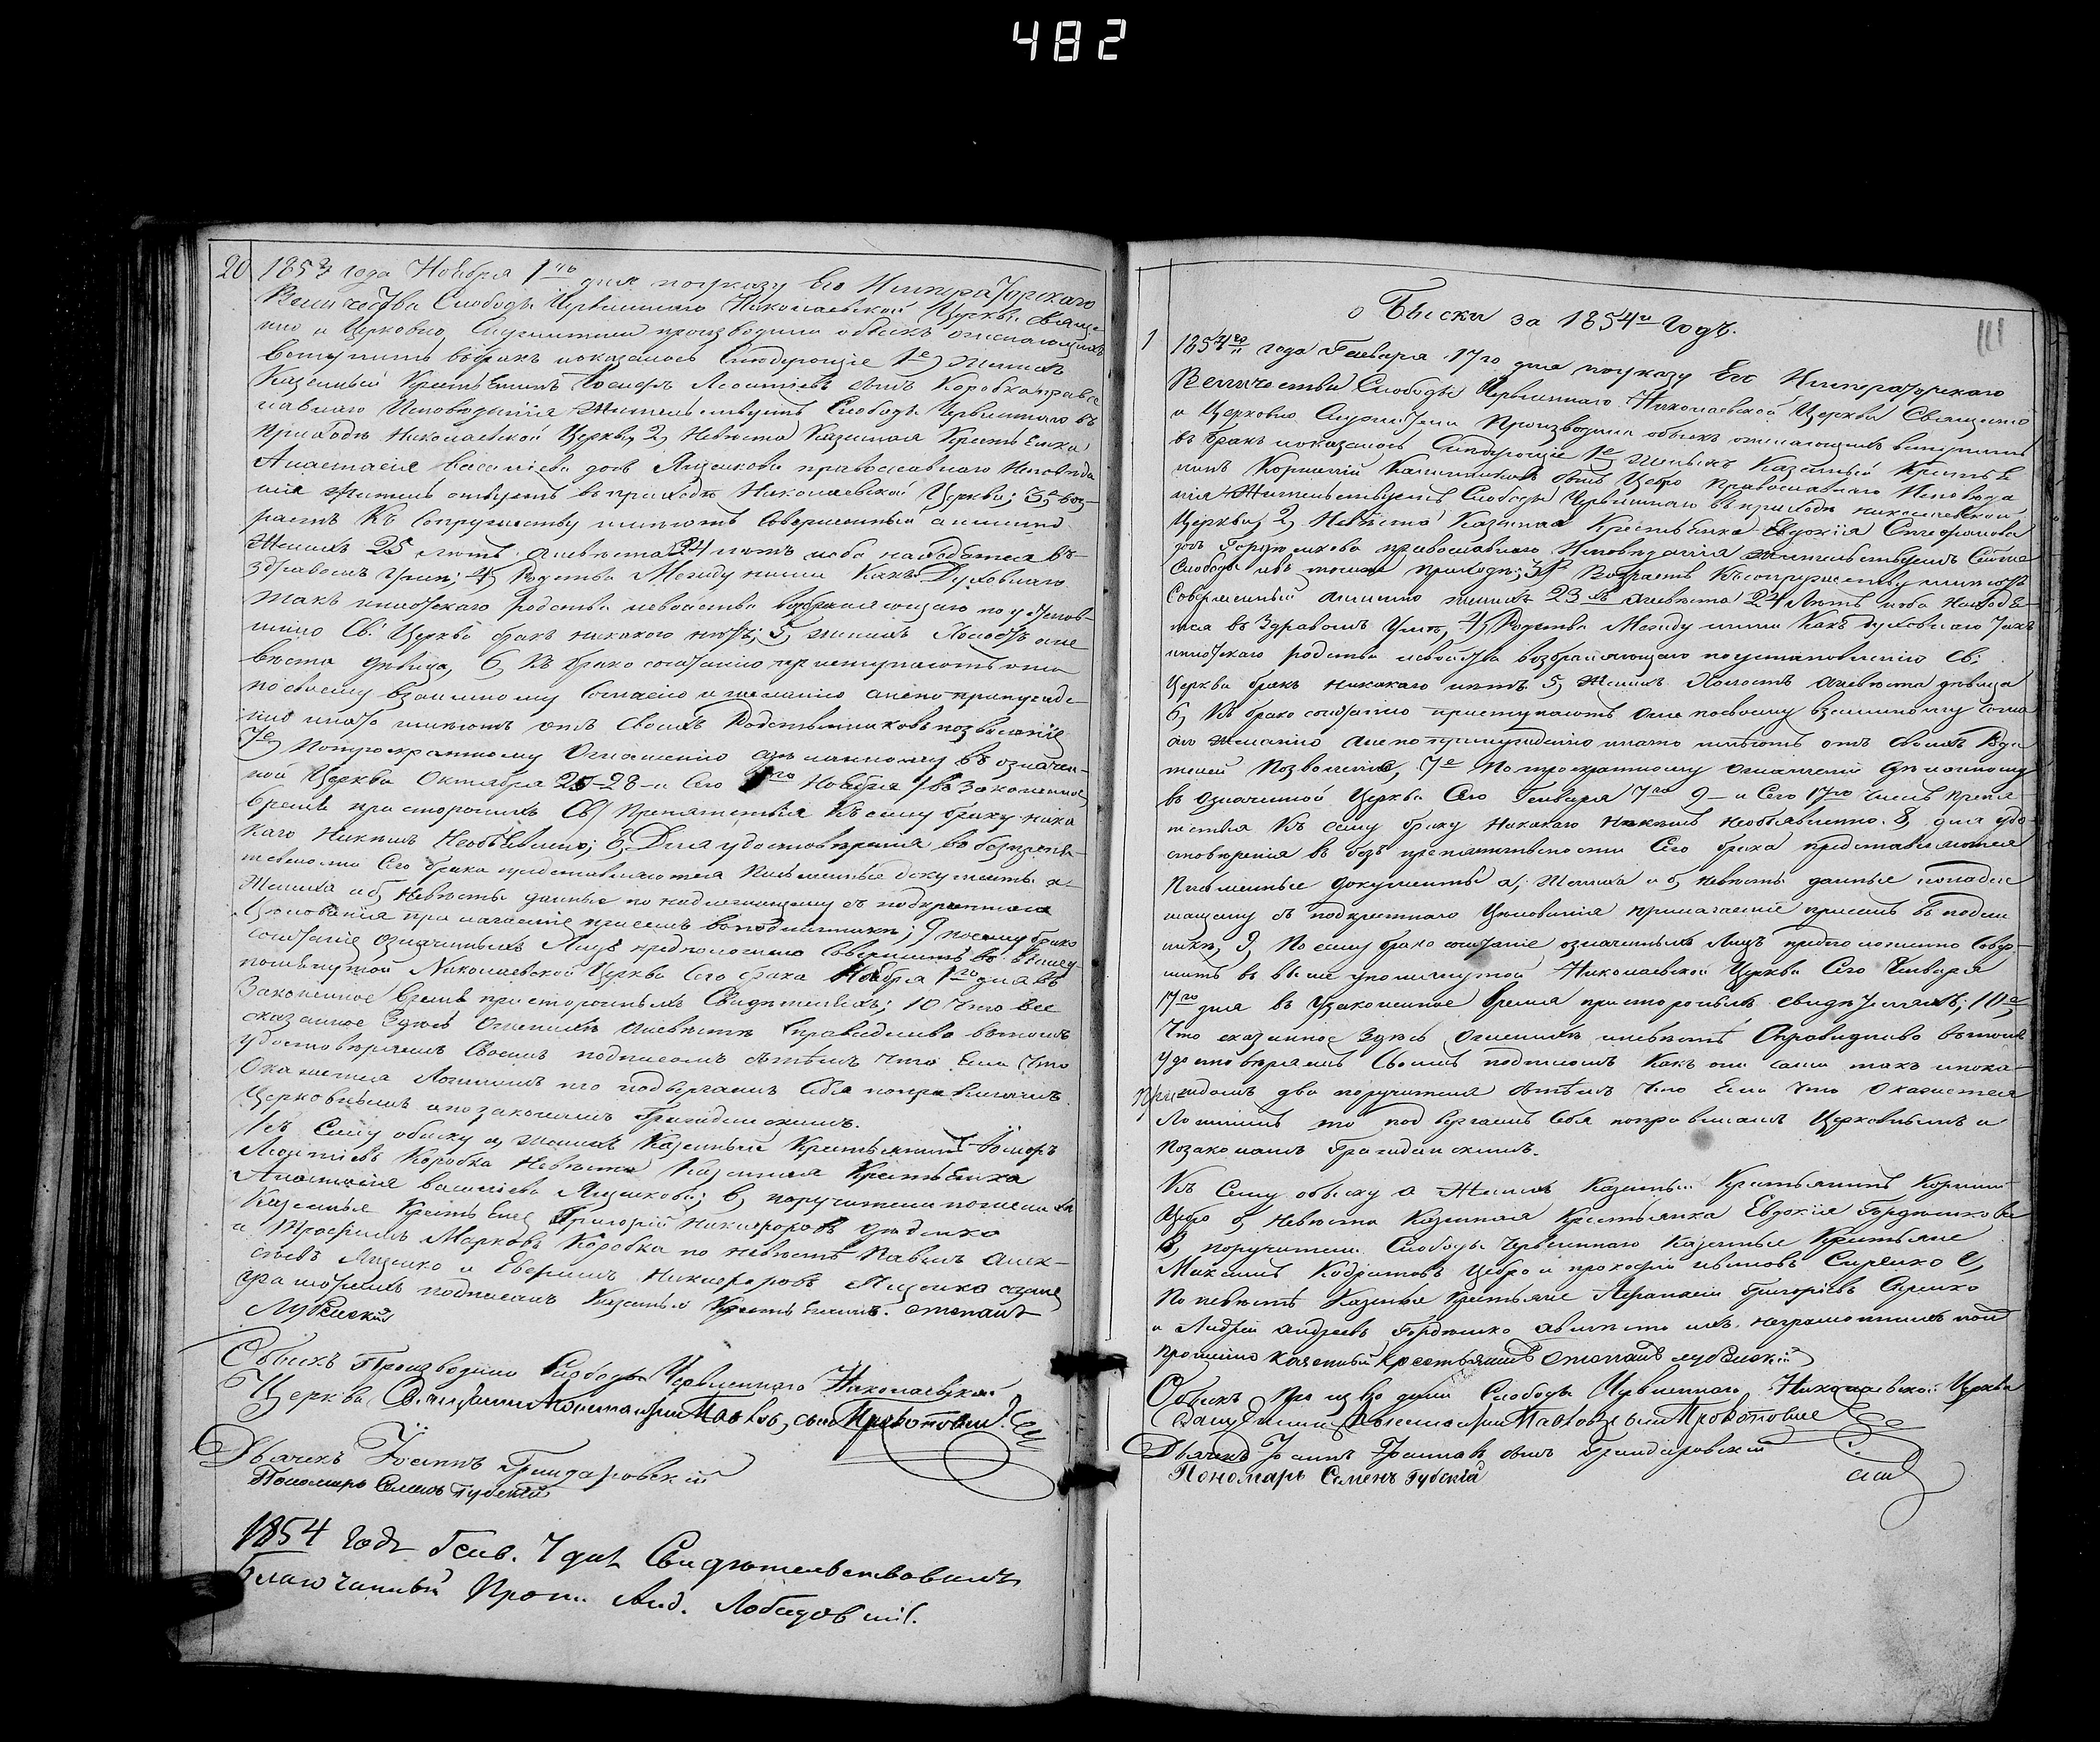 482
20
1853 года Ноября 1го дня по указу Его Императорскаго
Величества Слободы Червленнаго Николаевской Церкви Священно
но и Церковно Служители производили обыскъ о желающихъ
вступить въ бракъ и оказалось следующее 1е Женихъ
Казенный Крестьянинъ Иосифъ Леонтіевъ сынъ Коробка правос
лавнаго Исповеданія Жительствуетъ Слободы Червленнаго въ
Приходѣ Николаевской Церкви, 2, Невѣста Казенная Крестьянка
Анастасія Василіева дочь Яценкова православнаго Исповѣда
нія жительствуетъ въ приходѣ Николаевской Церкви; 3, воз-
растъ Къ Супружеству имѣютъ Совершенный а именно
Женихъ 25 лѣтъ а невѣста 24 лѣтъ и оба находятся въ
здравомъ Умѣ; 4, Родства Между ними Какъ Духовнаго
такъ и плотскаго родства и свойства возбраняющаго по установ-
лению Св. Церкви бракъ никакого нѣтъ; 5, женихъ Холостъ а не
вѣста дѣвица, 6, Къ бракосочетанію приступаютъ они
по своему взаимному Согласію и желанію а не по принужде-
нію и на то имѣютъ отъ Своихъ Родственниковъ позволеніе
7е По троекратному Оглашенію сдѣланному въ означен-
ной Церкви Октября 25-28 и Сего 1го Ноября въ Законенное
время при стороннихъ Св. Препятствія Къ сему браку ника
каго Никемъ Необъявлено; 8, Для удостовѣренія въ безпрепя-
тственности Сего брака представляются Письменные документы а
Жениха и б, Невѣсты данные по надлежащему съ подкрѣпнаго
Цѣлованія прилагаеміе при семъ въ подлинникѣ; 9, по сему брако
сочетаніе означенныхъ Лицъ предположено Совершить въ выше
помянутой Николаевской Церкви Сего брака Ноября 1го дня въ
Законенное время при стороннихъ Свидѣтеляхъ; 10 Что все
сказанное Здѣсь О женихѣ и невѣстѣ Справедливо въ томъ
удостовѣряемъ Своимъ подписомъ съ тѣмъ что Если что
Окажется Ложнымъ то подвергаемъ Себя по правиламъ
Церковнымъ и по законамъ Гражданскимъ.
Къ Сему обыску а, женихъ Казенный Крестьянинъ Иосифъ
Леонтіевъ Коробка Невѣста Казенная Крестьянка
Анастасія Василіева Яценкова; в, поручители по женихѣ
Казенные Крестьяне Григорій Никифоровъ Дѣденко
и Трофимъ Марковъ Коробка по невѣстѣ Павелъ Алек-
сѣевъ Яценко и Ефремъ Никифоровъ Яценко а за не
грамотныхъ подписалъ Казенный Крестьянинъ. Степанъ
Лубенский
Обыскъ Производили Слободы Червленнаго Николаевской
Церкви Священникъ Александръ Павловъ сынъ Прокоповичъ
Дьячекъ Іоаннъ Грицаровскій
Пономарь Семенъ Губскій
1854 года Генв. 7 дня Свидѣтельствовалъ
Благочинный Прот. Анд. Лободовскій.
111
о Быски за 1854й Годъ.
1
1854го года Генваря 17го дня по указу Его Императорскаго
Величества Слободы Червленнаго Николаевской Церкви Священно
и Церковно Служители Производили обыскъ о желающихъ вступить
въ бракъ и оказалось Следующіе 1е, Женихъ Казенный Крестья
нинъ Корнилій сынъ Цебро Православнаго Исповеда
нія Жительствуетъ Слободы Червленнаго въ приходѣ Николаевской
Церкви, 2, Невѣста Казенная Крестьянка Евдокія Стефанова
дочь Гордѣенкова православнаго Исповѣданія жительствуетъ Сей же
Слободы и въ томъ же приходѣ; 3, Возрастъ Къ супружеству имѣютъ
Совершенный а именно женихъ 23хъ а невѣста 24 Лѣтъ и оба Находя-
тся въ Здравомъ Умѣ, 4, Родства Между ними Какъ духовнаго такъ
и плотскаго родства и свойства возбраняющаго по установленію Св:
Церкви бракъ никакаго нѣтъ 5, Женихъ Холостъ а невѣста дѣвица
6, Къ бракосочетанію приступаютъ Они по своему взаимному Согла
сію желанію а не по принужденію и на то имѣютъ отъ своихъ Роди
телей Позволеніе, 7е По троекратному Оглашеній Сдѣланному
въ Означенной Церкви Сего Генваря 7го 9 и Сего 17го Числъ Препя
тствія Къ сему браку Никакаго Никемъ Необъявленно. 8, для удо-
стовѣренія въ безъ препятственности Сего брака представляются
Письменные документы а, Жениха и б, невѣсты данные по надле
жащему съ подкрестнаго Цѣлованія прилагаеміе при семъ въ подли
никѣ, 9, По сему бракосочетаніе означенныхъ Лицъ предположенно Совер-
шить въ выше упомянутой Николаевской Церкви Сего Генваря
17го дня въ Узаконенное Время при стороннихъ свидѣтеляхъ; 10е,
Что сказанное Здѣсь О женихѣ и невѣстѣ Справедливо въ томъ
Удостовѣряемъ Своимъ подписомъ Какъ они сами такъ и по ка-
ждомъ два поручителя съ тѣмъ что Если что Окажется
Ложнымъ то подвергаемъ Себя по правиламъ Церковнымъ и
По законамъ Гражданскимъ.
Къ Сему обыску а Женихъ Казенный Крестьянинъ Корнилій
Цебро б, Невѣста Казенная Крестьянка Евдокія Гордѣенкова
в, поручители Слободы Червленнаго Казенные Крестьяне
Максимъ Кодратовъ Цебро и прокофій Ивановъ Сиренко
По невѣстѣ Казенные Крестьяне Афанасій Григоріевъ Сиренко
и Андрей Андреевъ Гордѣенко а вмѣсто ихъ неграмотныхъ по их
прошенію казенный крестьянинъ Степанъ лубенскій
Обыскъ Производили Слободы Червленнаго Николаевской Церкви
Священникъ Александръ Павловъ сынъ Прокоповичъ
Дьячекъ Іоаннъ сынъ Грицаровскій
Пономарь Семенъ Губскій